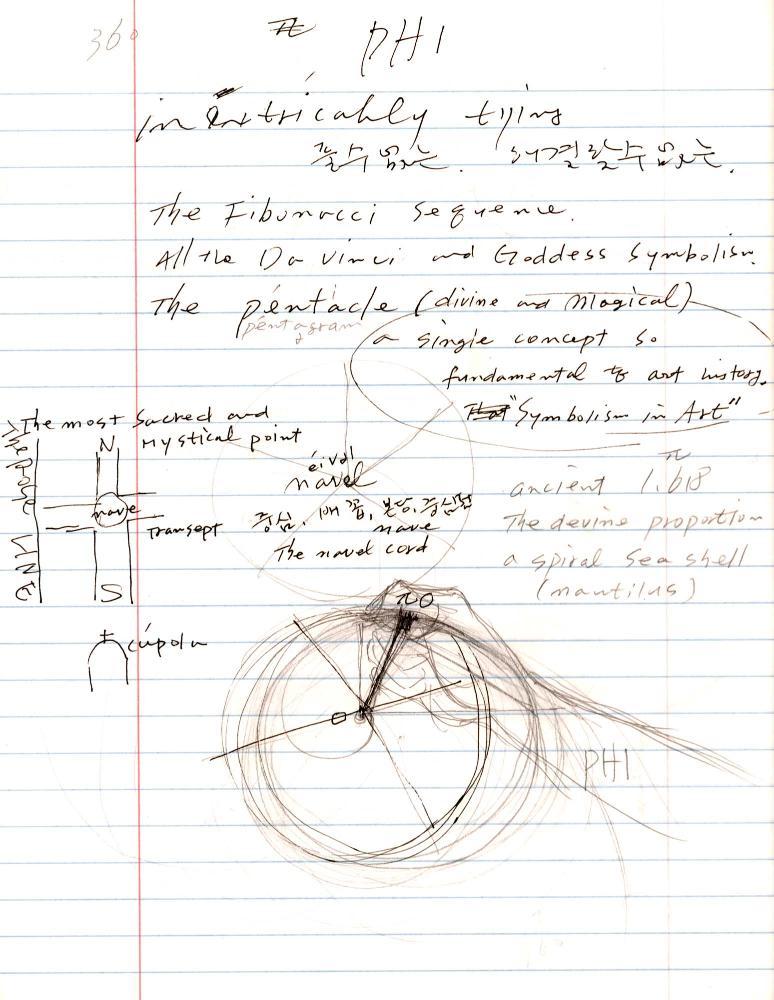 360
π PHI
inextricably tying
풀수 없는. 해결할수 없는.
The Fibunacci sequence.
All the Da Vinci and Goddess symbolism.
The pentacle (divine and magical)
pentagram
a single concept so
fundamental to art history.
That "Symbolism in Art"
The most sacred and
mystical point
The Rose LINE
N
nave
Transept
S
cúpola
navel
중심, 배꼽, 본당, 중심점
nave
The navel cord
π
ancient 1.618
The devine proportion
a spiral sea shell
(nautilus)
πO
O
PHI